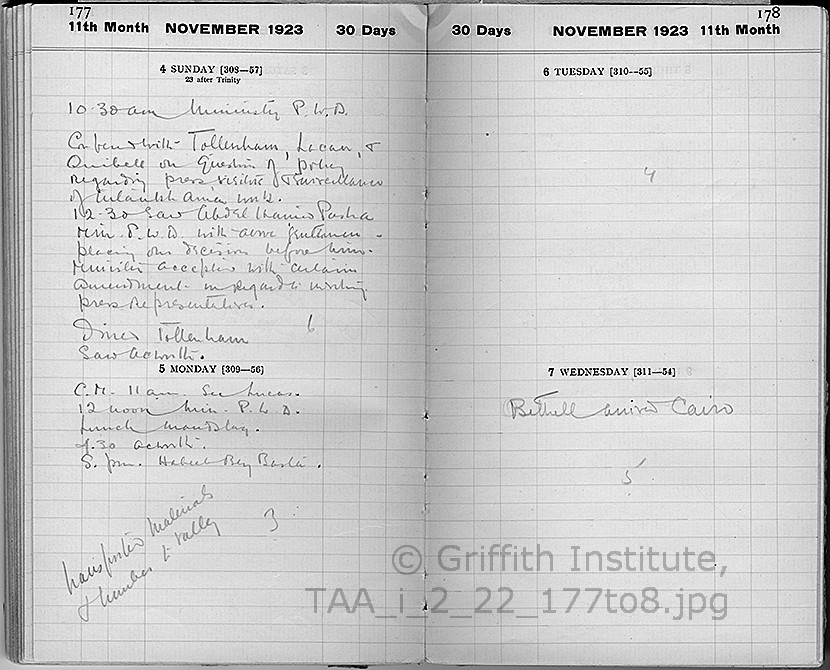 177
11th Month NOVEMBER 1923 30 Days
4 SUNDAY [308—57]
23 after Trinity
10.30 am Ministry P.W.D.
Conferred with Tottenham, Lacau, &
Quibell on question of policy
regarding press, visitors & surveillance
of
12.30 Saw Abdel Hamid Pasha
Min. P.W.D. with above gentlemen -
placing our decision before him.
Minister accepted with certain
amendment in regard to
press representatives.
Dined Tottenham
Saw Acworth.
6
5 MONDAY [309—56]
C.M. 11 am. See Lucas.
12 noon Min. P.W.D.
Lunch
4.30 Acworth.
Bey
transported materials
& timber to valley
3
178
30 Days NOVEMBER 1923 11th Month
6 TUESDAY [310—55]
4
7 WEDNESDAY [311—54]
Bethell arrived Cairo
5
© Griffith Institute,
TAA_i_2_22_177to8.jpg